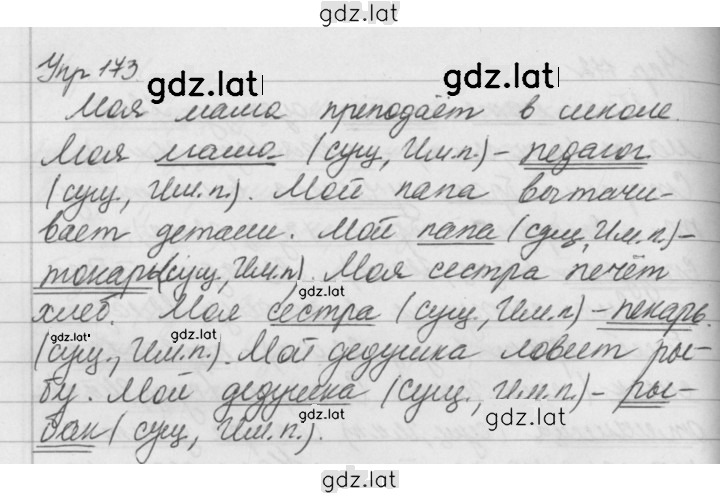 gdz.lat
Упр 173.
gdz.lat
gdz.lat
Моя мама преподаёт в школе.
Моя мама (сущ, Им.п.) – педагог
(сущ., Им.п.). Мой папа вытачи-
вает детали. Мой папа (сущ, Им.п.) –
токарь (сущ, Им.п). Моя сестра печёт
gdz.lat
хлеб. Моя сестра (сущ., Им.п) – пекарь.
gdz.lat
gdz.lat
(сущ., Им.п.). Мой дедушка ловит ры-
бу. Мой дедушка (сущ., И.п.) – ры-
gdz.lat
gdz.lat
бак (сущ, Им.п.).
gdz.lat